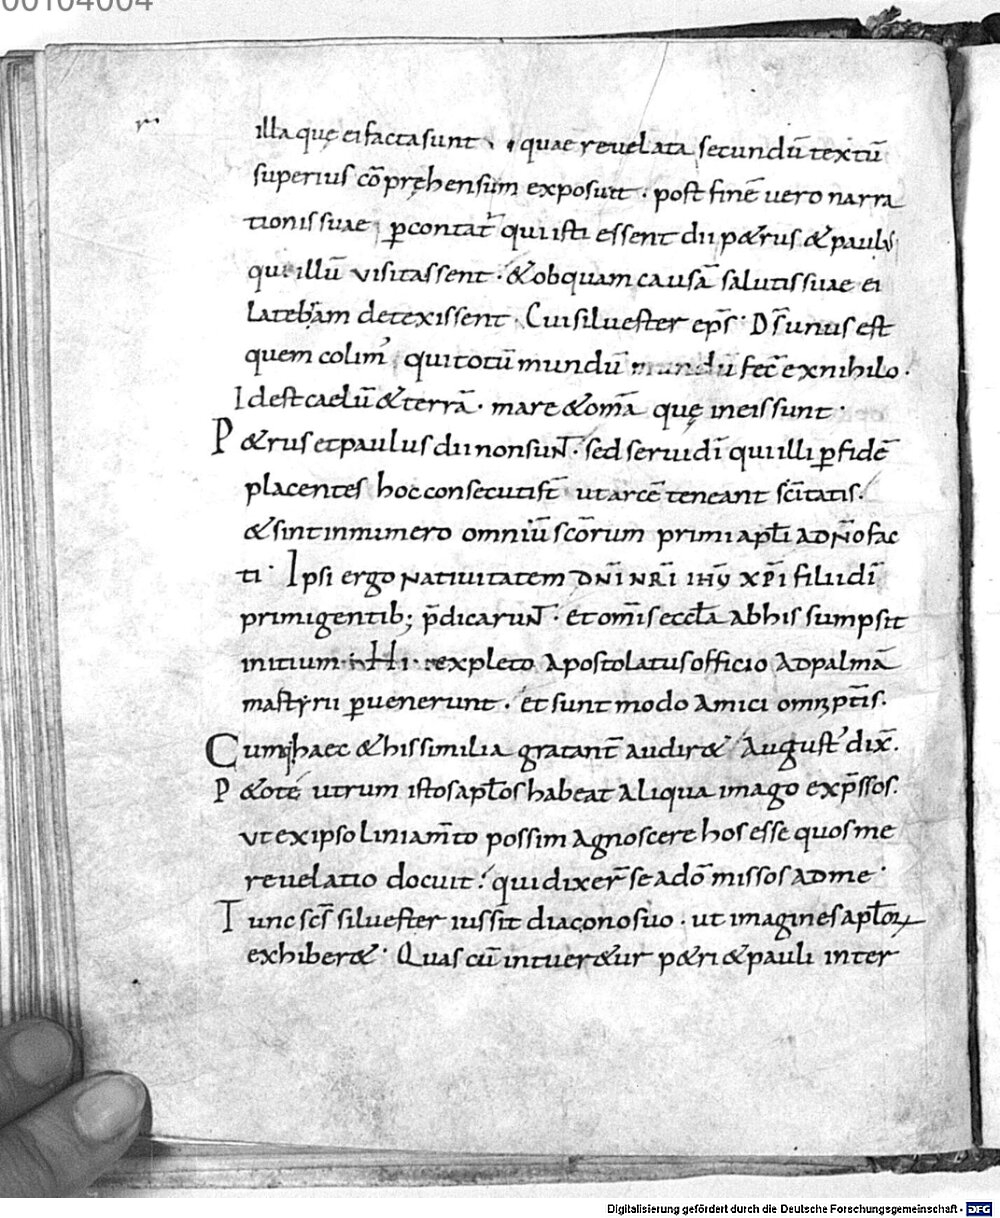 00104004
illa quę ei facta sunt · quae reuelata secundū textū
superius cō pręhensum exposuit · post finē uero narra
tionis suae ꝑcontat̄ qui isti essent dii p&rus & paulus
qui illū visitassent · & ob quam causā salutis suae ei
latebram detexissent · Cui siluester ep̄s · Ds̄ unus est
quem colim' qui totū mundū mundū fec̄ ex nihilo ·
Id est caelū & terrā · mare & om̄a quę in eis sunt ·
P&rus et paulus dii non sunt · sed serui dī qui illi ꝑ fidē
placentes hoc consecuti st̄ ut arcē teneant sc̄itatis ·
& sint in numero omniū sc̄orum primi apl̄i ad n̄o fac
ti · Ipsi ergo natiuitatem dn̄i nr̄i ihū xp̄i filii dī
primi gentib; p̄dicarunt · et om̄is eccl̄a ab his sumpsit
initium · Hi · expleto apostolatus officio ad palmā
martyrii ꝑuenerunt · et sunt modo amici omnipt̄is ·
Cumq; haec & his similia gratant̄ audir& August' dix̄ ·
P&o te utrum istos apl̄os habeat aliqua imago exp̄ssos ·
ut ex ipso liniam̄to possim agnoscere hos esse quos me
reuelatio docuit · qui dixer̄ se a dō missos ad me ·
Tunc sc̄s siluester iussit diacono suo · ut imagines apl̄oꝝ
exhiber& · Quas cū intuer&ur p&ri & pauli inter
Digitalisierung gefördert durch die Deutsche Forschungsgemeinschaft - DFG